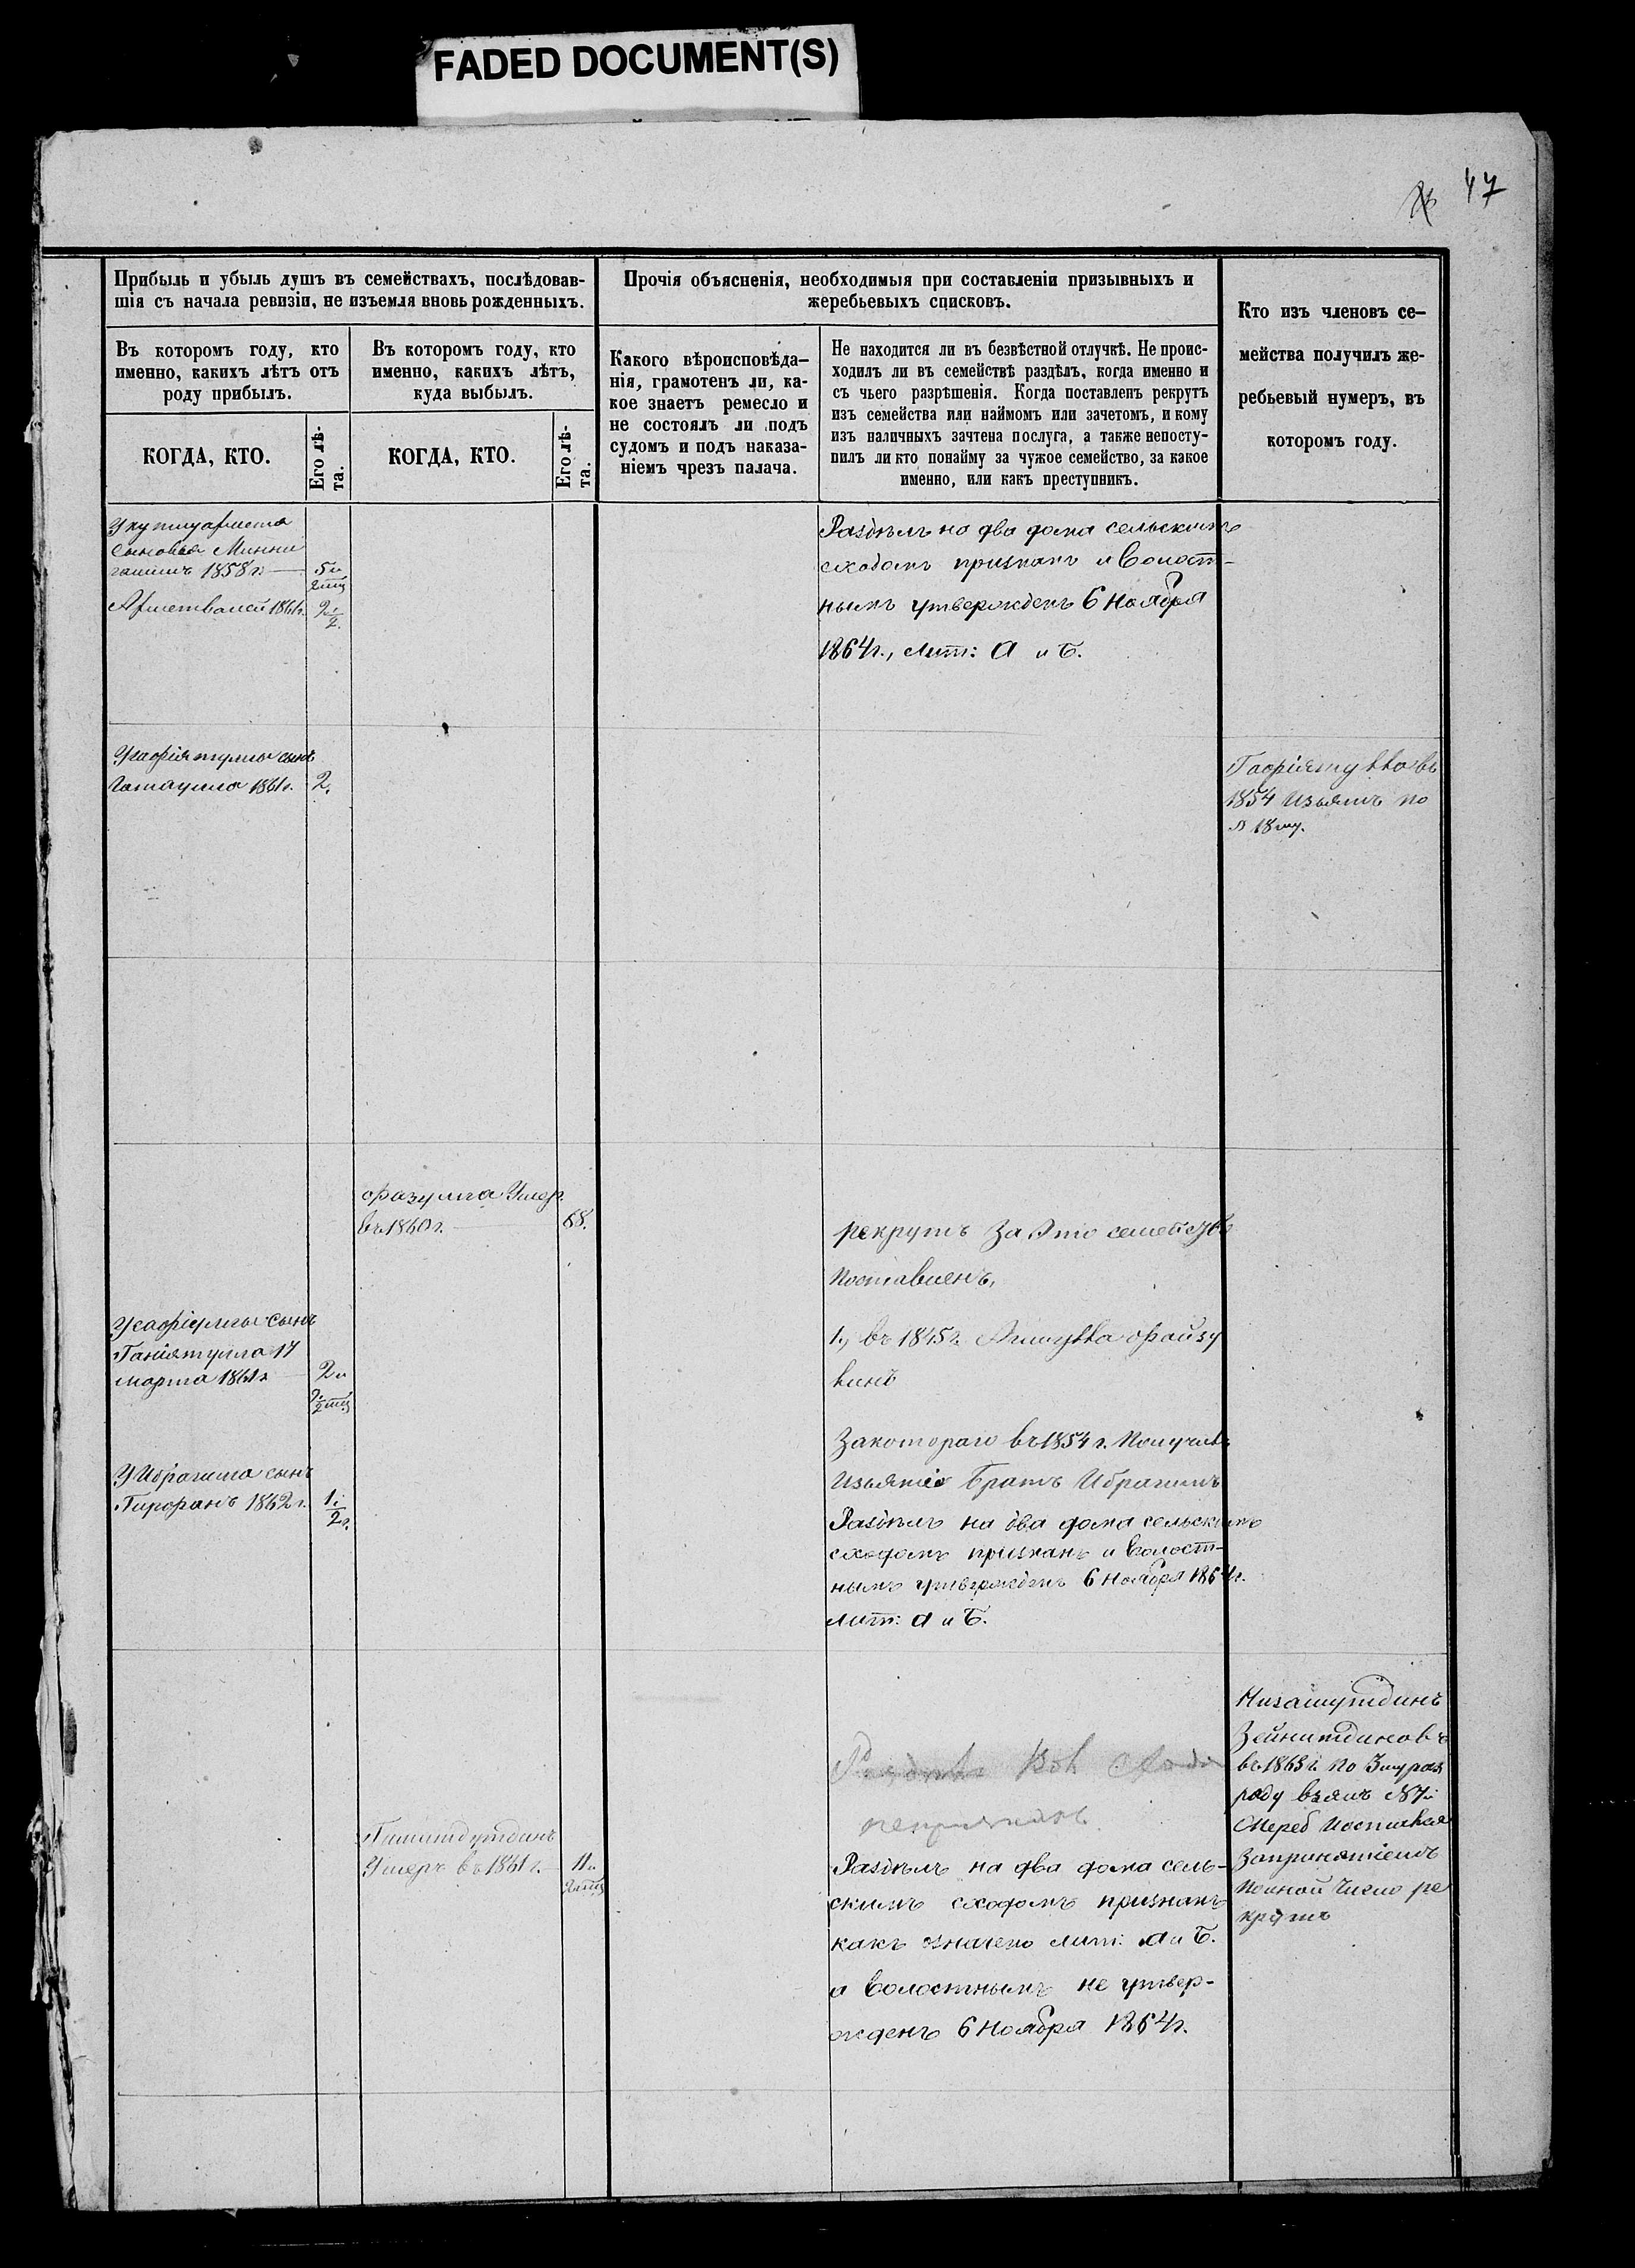 FADED DOCUMENT(S)
47
Прибыль и убыль душъ въ семействахъ, послѣдовав-
шія съ начала ревизіи, не изъемля вновь рожденныхъ.
Прочія объясненія, необходимыя при составленіи призывныхъ и
жеребьевыхъ списковъ.
Кто изъ членовъ се-
мейства получилъ же-
ребьевый нумеръ, въ
которомъ году.
Въ которомъ году, кто
именно, какихъ лѣтъ отъ
роду прибылъ.
Въ которомъ году, кто
именно, какихъ лѣтъ,
куда выбылъ.
Какого вѣроисповѣда-
нія, грамотенъ ли, ка-
кое знаетъ ремесло и
не состоялъ ли подъ
судомъ и подъ наказа-
ніемъ чрезъ палача.
Не находится ли въ безвѣстной отлучкѣ. Не проис-
ходилъ ли въ семействѣ раздѣлъ, когда именно и
съ чьего разрѣшенія. Когда поставленъ рекрутъ
изъ семейства или наймомъ или зачетомъ, и кому
изъ наличныхъ зачтена послуга, а также непосту-
пилъ ли кто понайму за чужое семейство, за какое
именно, или какъ преступникъ.
КОГДА, КТО.
Его лѣ-
та.
КОГДА, КТО.
Его лѣ-
та.
сыновья Минни
1858 г. 5 и
1861 г. 2 1/2
Раздѣлъ на два дома сельскимъ
сходомъ признанъ и волост-
нымъ утвержденъ 6 Ноября
1864 г., лит: А и Б.
сынъ
1861 г. 2.
Гафіятулла въ
1854 изъятъ по
№ 18 му.
Фазулла Умер.
въ 1860 г. 68.
рекрутъ за это семейство
поставленъ,
1, въ 1845 г.
У Сафіуллы сынъ
Ганіятулла 17
марта 1861 г. 2 и
За котораго въ 1854 г. получилъ
изъятіе братъ Ибрагимъ
У Ибрагима сынъ
1862 г. 1 1/2 г.
Раздѣлъ на два дома сельскимъ
сходомъ признанъ и волост-
нымъ утвержденъ 6 Ноября 1864 г.
лит: А и Б.
Низамутдинъ
Зейнитдиновъ
въ 1863 г. по 3му раз
ряду взялъ №
жереб
за принятіемъ
полной число ре
крутъ
непризнанъ.
Умеръ въ 1861 г. 11 и
Раздѣлъ на два дома сель-
скимъ сходомъ признанъ
какъ значено лит: А и Б.
а волостнымъ не утвер-
жденъ 6 Ноября 1864 г.